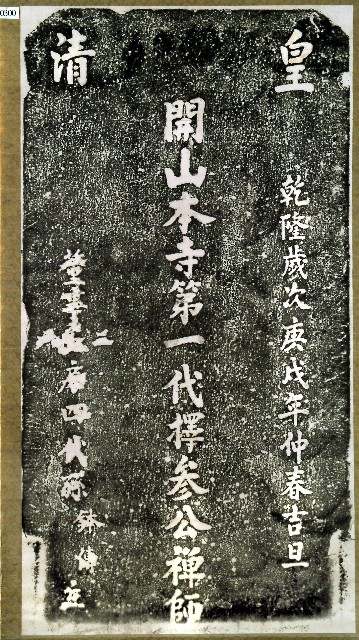 0300
皇
清
乾隆歲次庚戌年仲春吉旦
開山本寺第一代擇参公禪師
四代孫